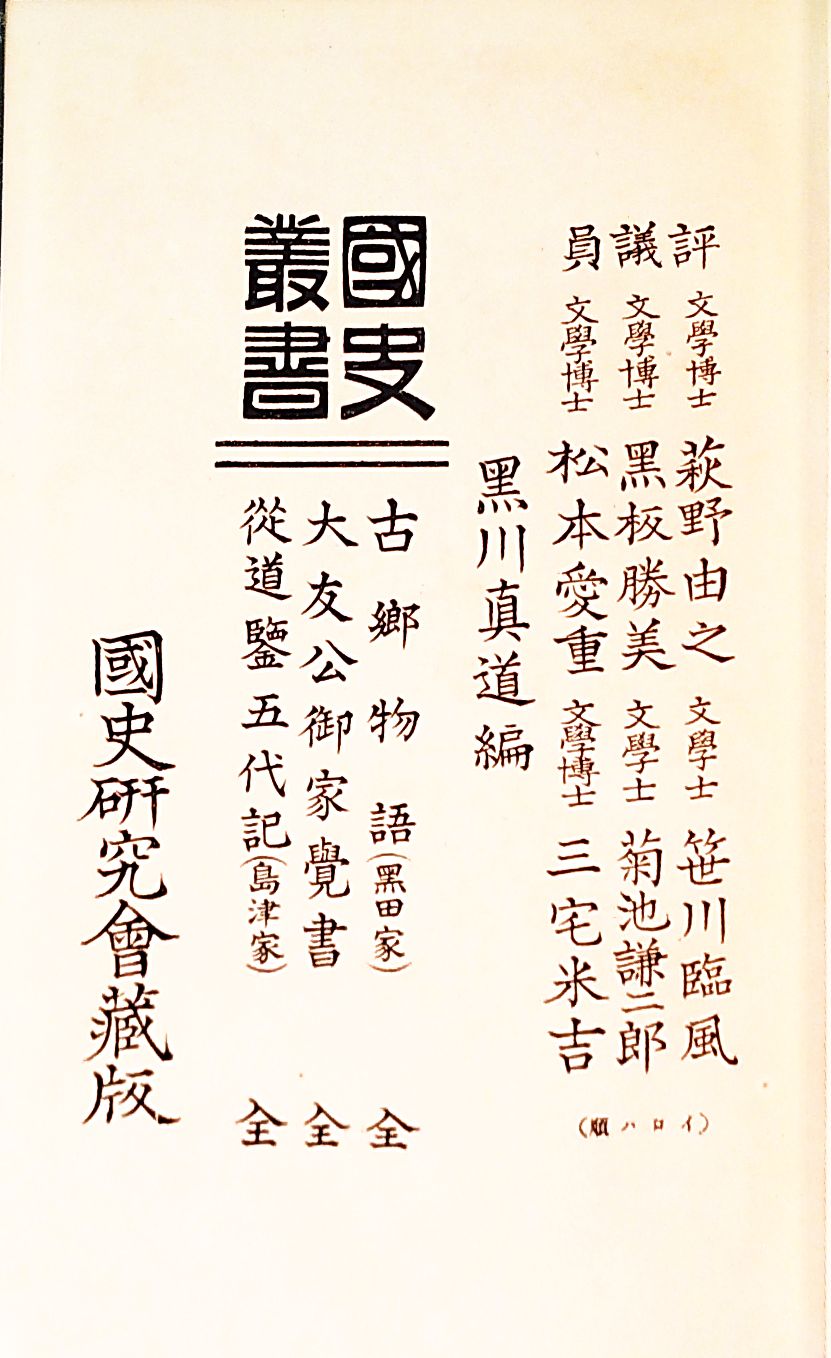 評議員
文學博士 萩野由之 文學士 笹川臨風
文學博士 黑板勝美 文學士 菊池謙二郎
文學博士 松本愛重 文學博士 三宅米吉
(イロハ順)
黑川真道編
國史叢書
古鄉物語(黑田家) 全
大友公御家覺書 全
從道鑒五代記(島津家) 全
國史硏究會藏版